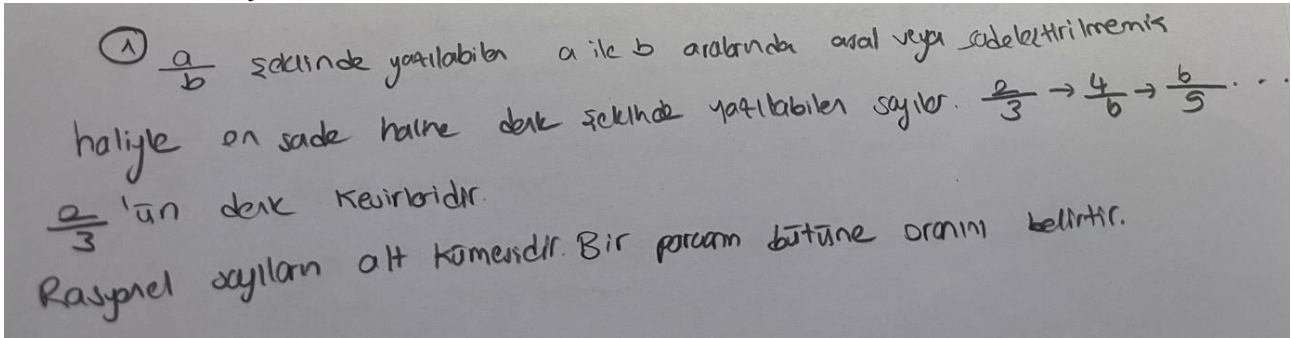 ① a/b şeklinde yazılabilen a ile b aralarında asal veya sadeleştirilmemiş
haliyle en sade haline denk şeklinde yazılabilen sayılar. 2/3 → 4/6 → 6/9 ...
2/3 'ün denk kesirleridir.
Rasyonel sayıların alt kümesidir. Bir parçanın bütüne oranını belirtir.